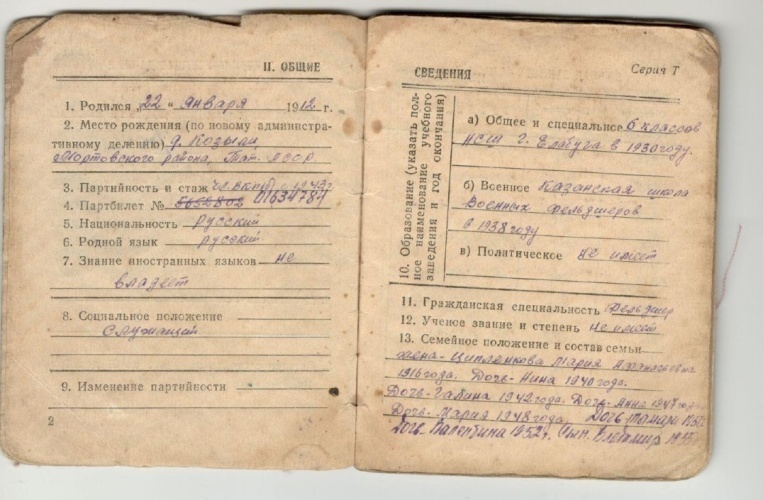 II. ОБЩИЕ
1. Родился „22“ января 1912 г.
2. Место рождения (по новому администра-
тивному делению) д. Козыли
Мортовского района, Тат. АССР.
3. Партийность и стаж чл. ВКП(б) с 1943г.
4. Партбилет № 5656802 01634784
5. Национальность русский
6. Родной язык русский
7. Знание иностранных языков не
владеет
8. Социальное положение
Служащий
9. Изменение партийности
2
СВЕДЕНИЯ
Серия Т
10. Образование (указать пол-
ное наименование учебного
заведения и год окончания)
а) Общее и специальное 6 классов
НСШ г. Елабуга в 1930 году.
б) Военное Казанская школа
военных фельдшеров
в 1938 году
в) Политическое не имеет
11. Гражданская специальность Фельдшер
12. Ученое звание и степень не имеет
13. Семейное положение и состав семьи
жена - Ципленкова Мария Афанасьевна
1916 года. Дочь - Нина 1940 года.
Дочь - Галина 1942 года. Дочь - Анна 1947 года
Дочь - Мария 1948 года. Дочь Тамара
Дочь - Валентина 1952 г. Сын Владимир